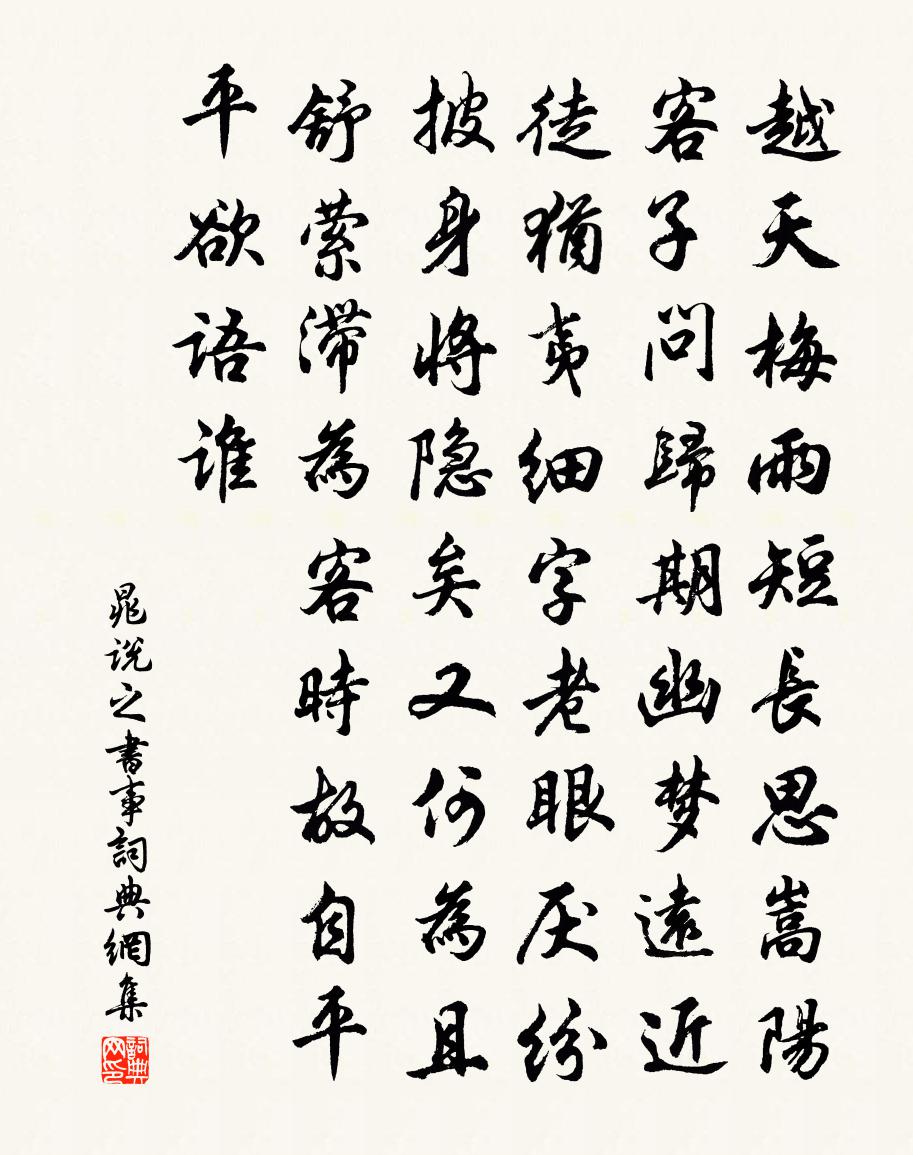 越天梅雨短長思嵩陽
客子問歸期幽梦遠近
徒猶夷細字老眼厌纷
披身將隐矣又何為且
舒萦滞為客時故自平
平欲語谁
晁说之書事詞典網集
詞典网印